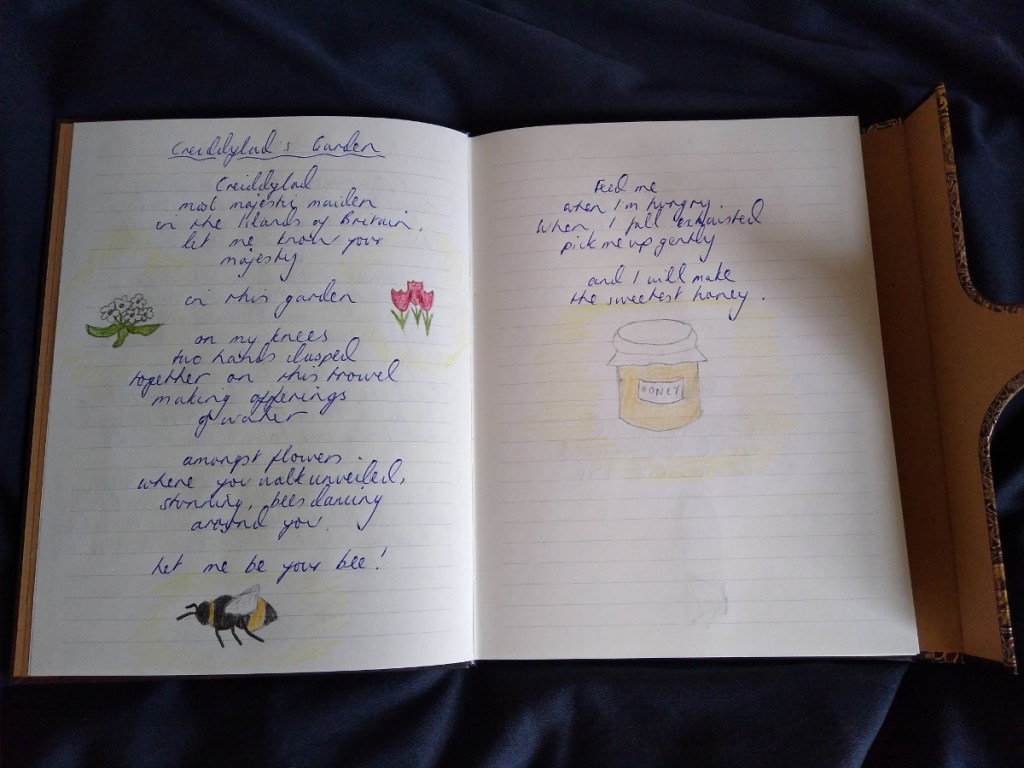 Creiddylad's Garden
Creiddylad
most majestic maiden
in the Islands of Britain,
let me know your
majesty
in this garden
on my knees
two hands clasped
together on this trowel
making offerings
of water
amongst flowers
where you walk unveiled,
stunning, bees dancing
around you.
Let me be your bee!
Feed me
when I'm hungry.
When I fall exhausted
pick me up gently
and I will make
the sweetest honey.
HONEY